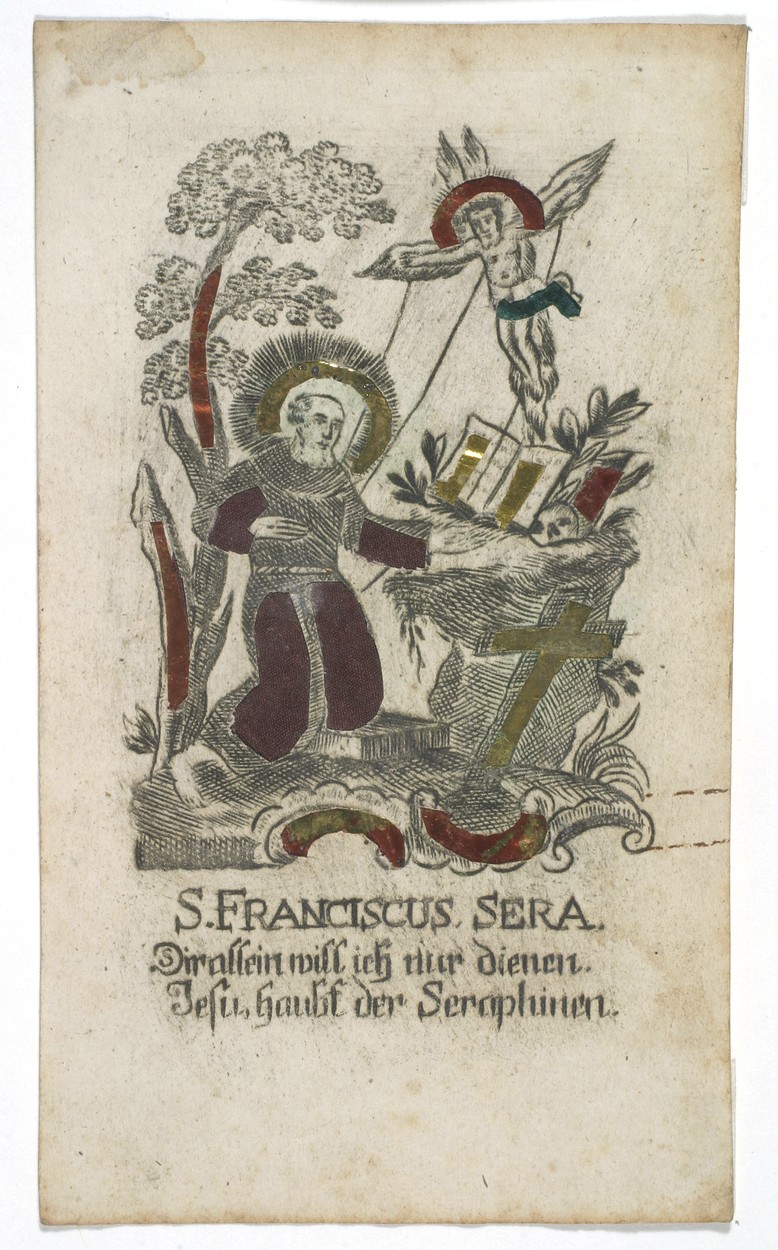 S. FRANCISCUS SERA.
Dir allein will ich nur dienen.
Jesu, haubt der Seraphinen.